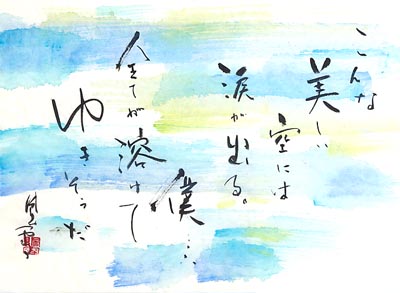 こんな
美しい
空には
涙が出る。
僕…
全てが溶けて
ゆきそうだ